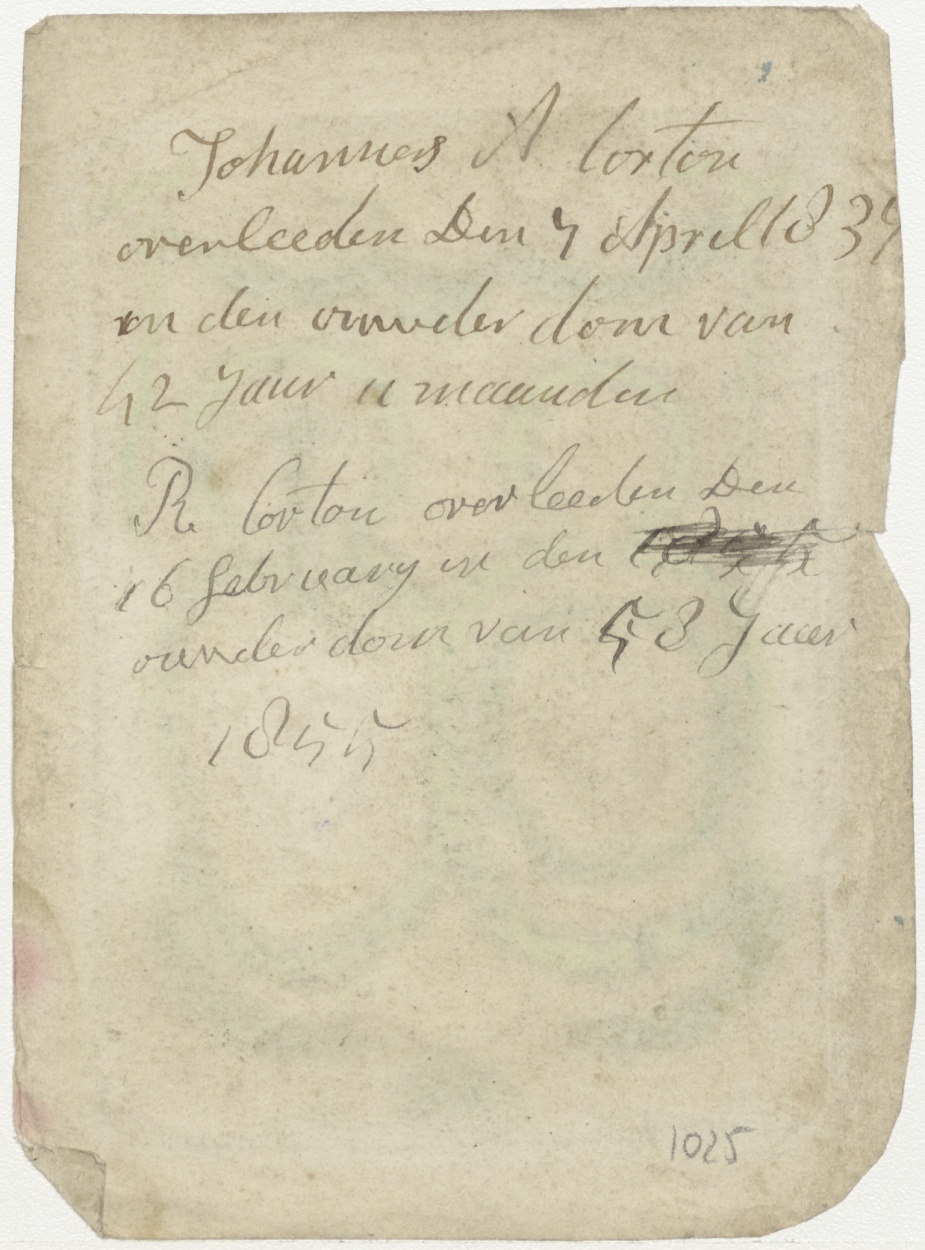 Johannes A Corton
overleeden Den 7 April 1839
in den ouwder dom van
42 Jaar 11 maanden
R Corton overleeden Den
16 februarij in den
ouwder dom van 53 Jaar
1855
1025